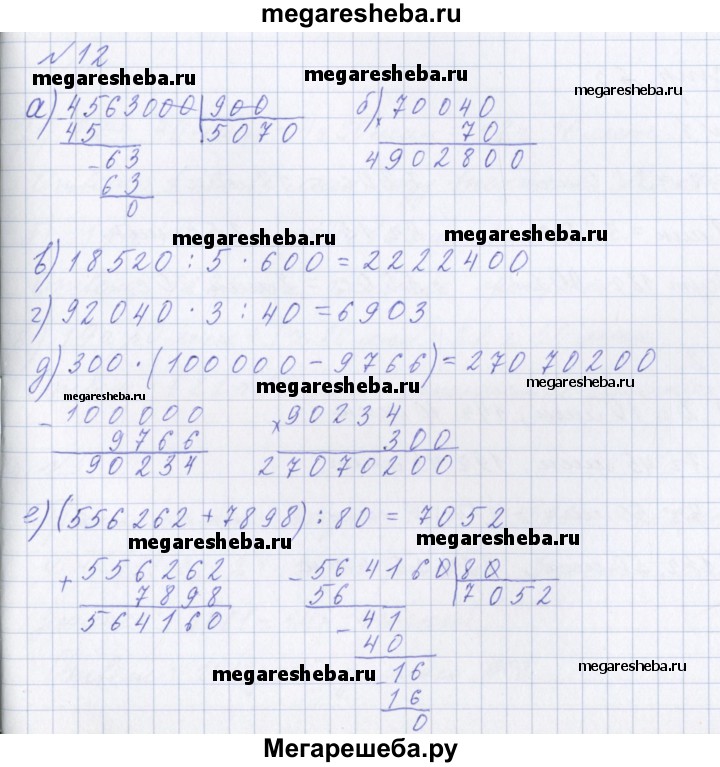 megaresheba.ru
№12
megaresheba.ru megaresheba.ru
а) 4563000 | 900 б) × 70040 megaresheba.ru
- 45 5070 70
- 63 4902800
63
0
megaresheba.ru megaresheba.ru
в) 18520 : 5 · 600 = 2222400
г) 92040 · 3 : 40 = 6903
д) 300 · (100000 - 9766) = 27070200
megaresheba.ru megaresheba.ru megaresheba.ru
- 100000 × 90234
9766 300
90234 27070200
е) (556262 + 7898) : 80 = 7052
megaresheba.ru megaresheba.ru
+ 556262 - 564160 | 80
7898 56 7052
564160 - 41
40
megaresheba.ru - 16 megaresheba.ru
16
0
Мегарешеба.ру